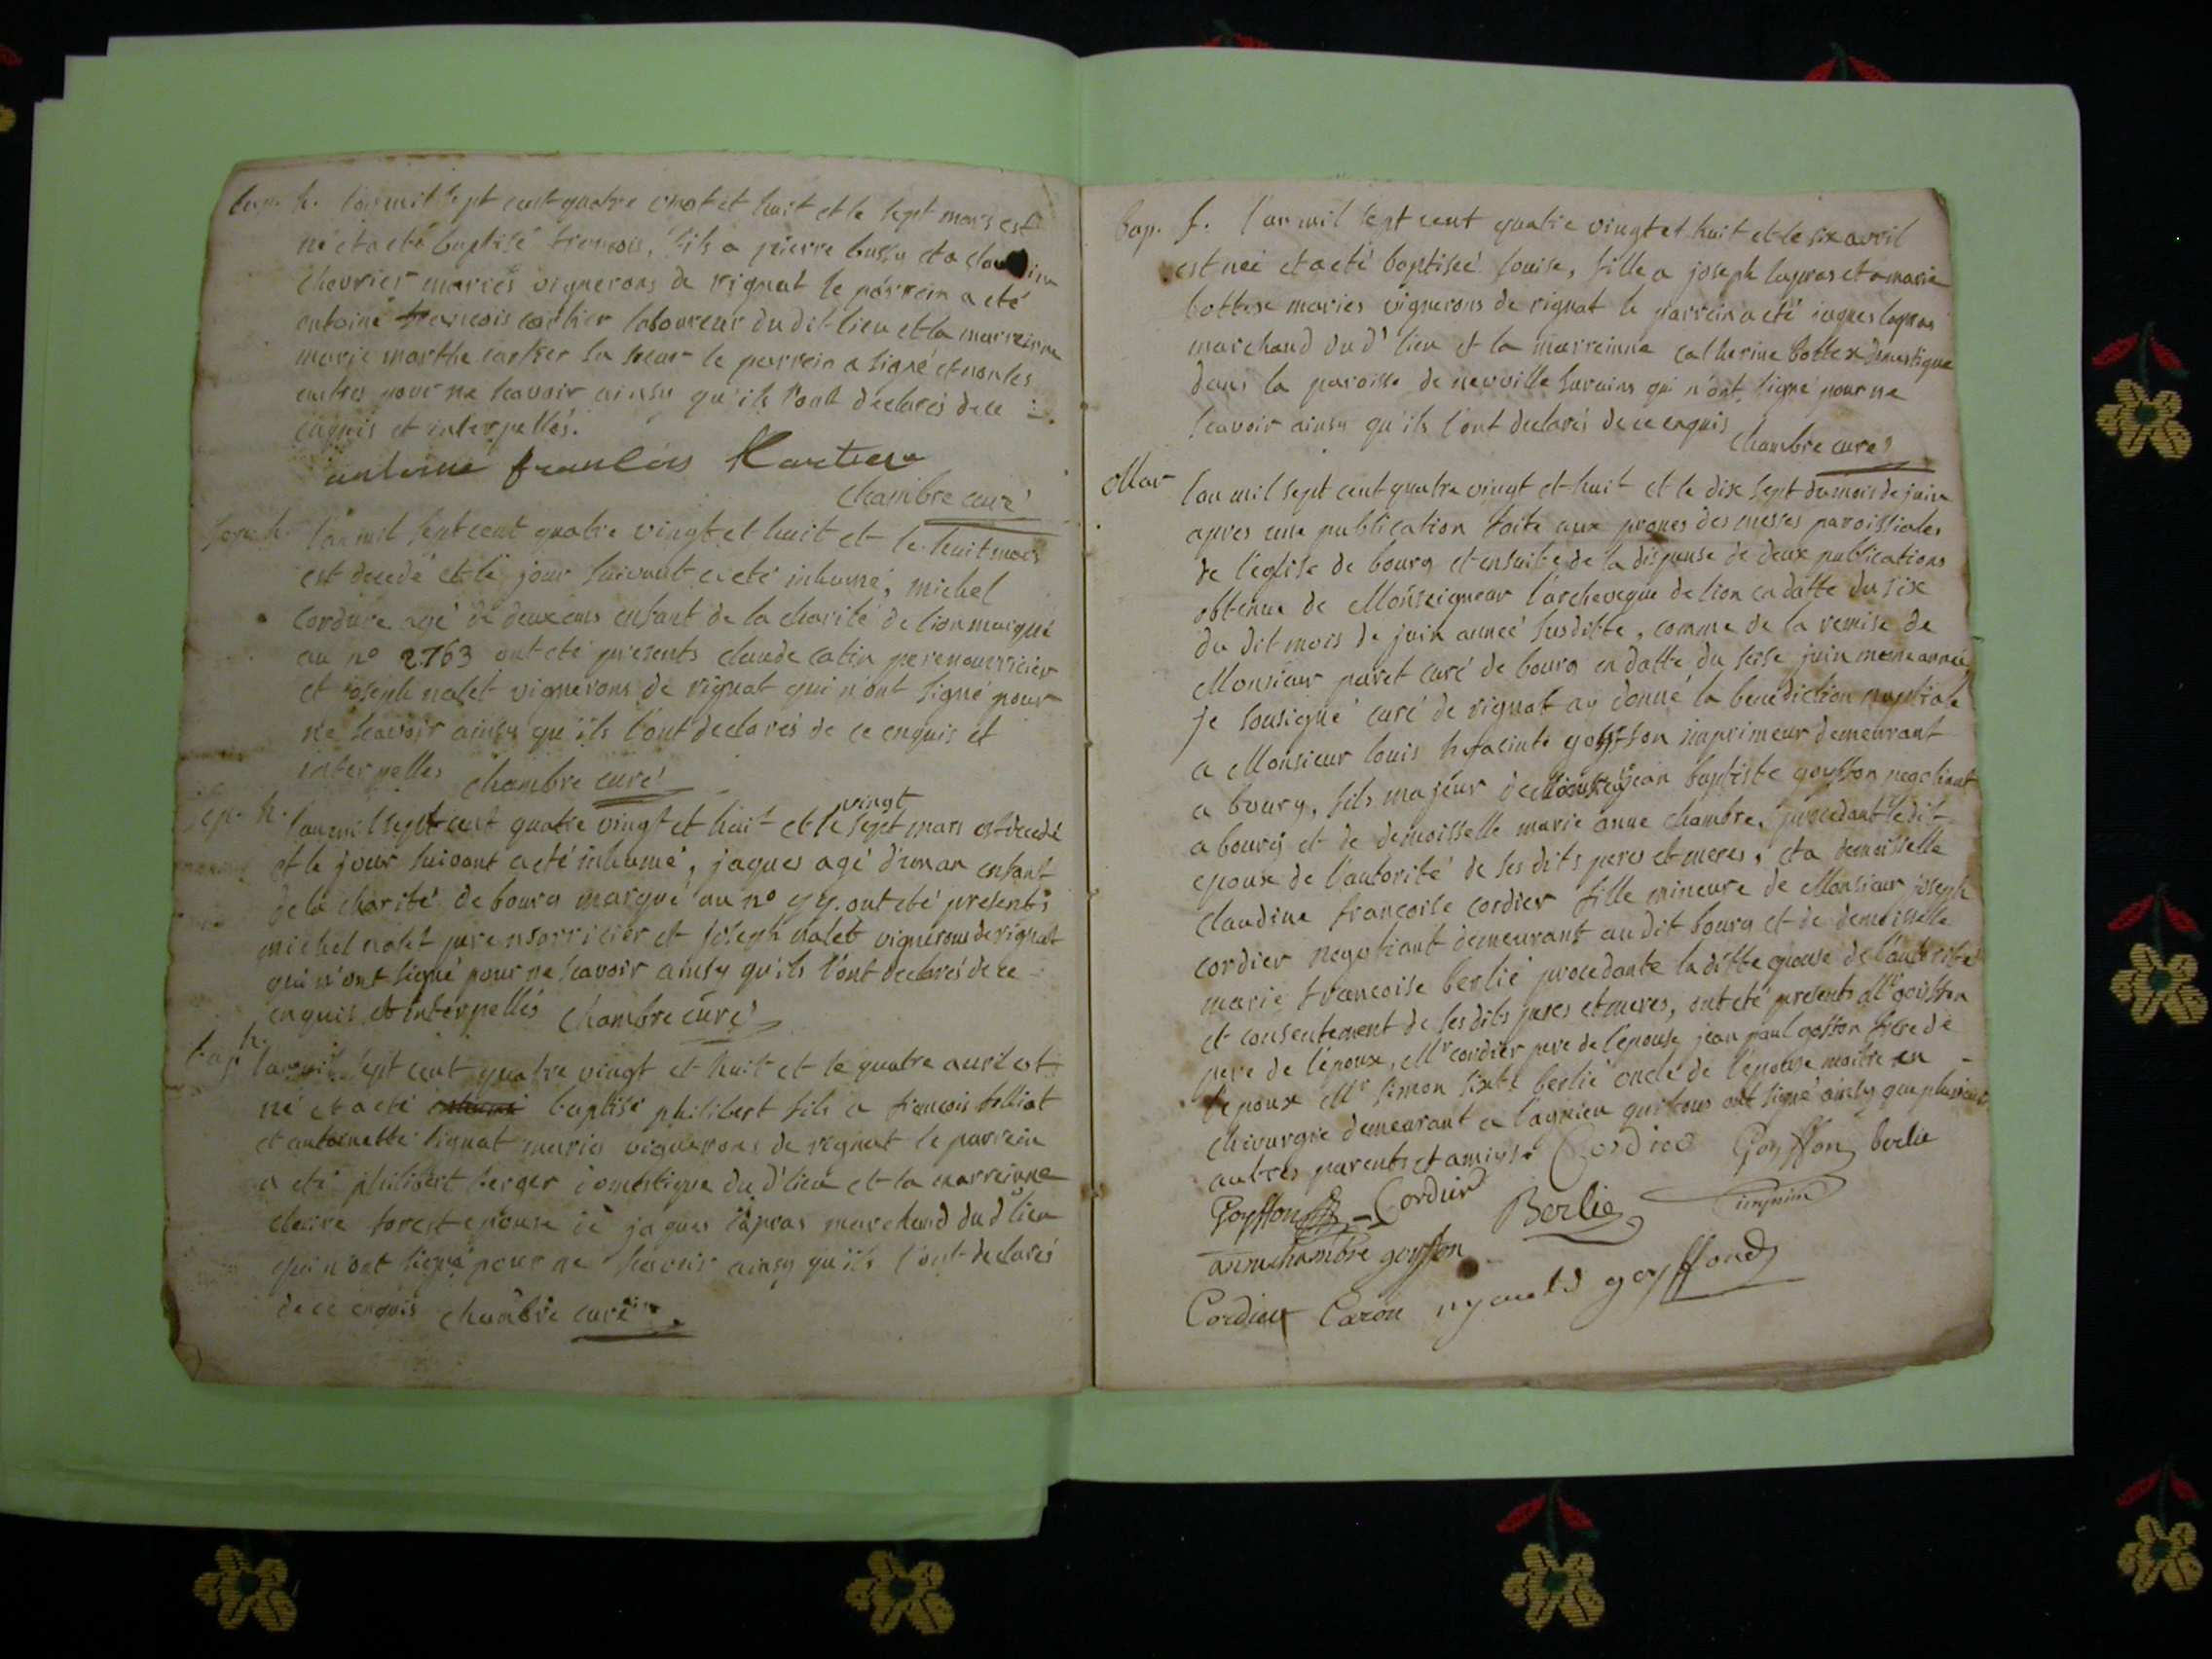 bap. h. l'an mil sept cent quatre vingt et huit et le sept mars est
né et a eté baptisé francois, fils a pierre bussy et a
chevrier mariés vignerons de rignat le parrein a eté
antoine francois cartier laboureur du dit lieu et la marreinne
marie marthe cartier sa soeur le parrein a signé et non les
autres pour ne scavoir ainsy qu'ils l'ont declarés de ce
enquis et interpellés.
antoine francois Kartier
chambre curé
sep. h. l'an mil sept cent quatre vingt et huit et le huit mars
est decedé et le jour suivant a eté inhumé, michel
cordure agé de deux ans enfant de la charité de lion marqué
au n° 2763 ont eté presents claude catin pere nourricier
et joseph nalet vignerons de rignat qui n'ont signé pour
ne scavoir ainsy qu'ils l'ont declarés de ce enquis et
interpelles chambre curé
sep. h. l'an mil sept cent quatre vingt et huit et le vingt sept mars est decedé
et le jour suivant a eté inhumé, jaques agé d'un an enfant
de la charité de bourg marqué au n° yy. ont eté presents
michel nalet pere nourricier et joseph nalet vignerons de rignat
qui n'ont signé pour ne scavoir ainsy qu'ils l'ont declarés de ce
enquis et interpellés chambre curé
bap. h. l'an mil sept cent quatre vingt et huit et le quatre avril est
né et a eté baptisé philibert fils a francois folliat
et antoinette tignat maries vignerons de rignat le parrein
a eté philibert berger domestique du d' lieu et la marreinne
claire forest epouse de jaques lapras marchand du d' lieu
qui n'ont signé pour ne scavoir ainsy qu'ils l'ont declarés
de ce enquis chambre curé
bap. f. l'an mil sept cent quatre vingt et huit et le six avril
est neé et a eté baptiseé louise, fille a joseph lapras et a marie
bottex maries vignerons de rignat le parrein a eté jaques lapras
marchand du d' lieu et la marreinne catherine bottex domestique
dans la paroisse de neuville surains qui n'ont signé pour ne
scavoir ainsy qu'ils l'ont declarés de ce enquis
chambre curé
Mar l'an mil sept cent quatre vingt et huit et le dix sept du mois de juin
apres une publication faite aux prones des messes paroissiales
de l'eglise de bourg et ensuite de la dispense de deux publications
obtenue de Monseigneur l'archeveque de lion en datte du six
du dit mois de juin anneé susditte, comme de la remise de
Monsieur paret curé de bourg en datte du seise juin meme anneé
je sousigné curé de rignat ay donné la benediction nuptiale
a Monsieur louis hyacinte goyffon imprimeur demeurant
a bourg, fils majeur de Monsieur jean baptiste goyffon negotiant
a bourg et de demoisselle marie anne chambre, procedant le dit
epoux de l'autorité de ses dits peres et meres, et a demoisselle
claudine francoise cordier fille mineure de Monsieur joseph
cordier negotiant demeurant au dit bourg et de demoisselle
marie francoise berlié procedante la ditte epouse de l'autorité
et consentement de ses dits peres et meres, ont eté presents Mr goiffon
pere de l'epoux, Mr cordier pere de l'epouse jean paul goffon frere de
l'epoux Mr simon sixte berlié oncle de l'epouse maitre en
chirurgie demeurant a lagnieu qui tous ont signé ainsy que plusieurs
autres parents et amis. Cordier Goyffon berlie
Goyffon Cordier Berlie
anne chambre goyffon
Cordier Caron goyffond